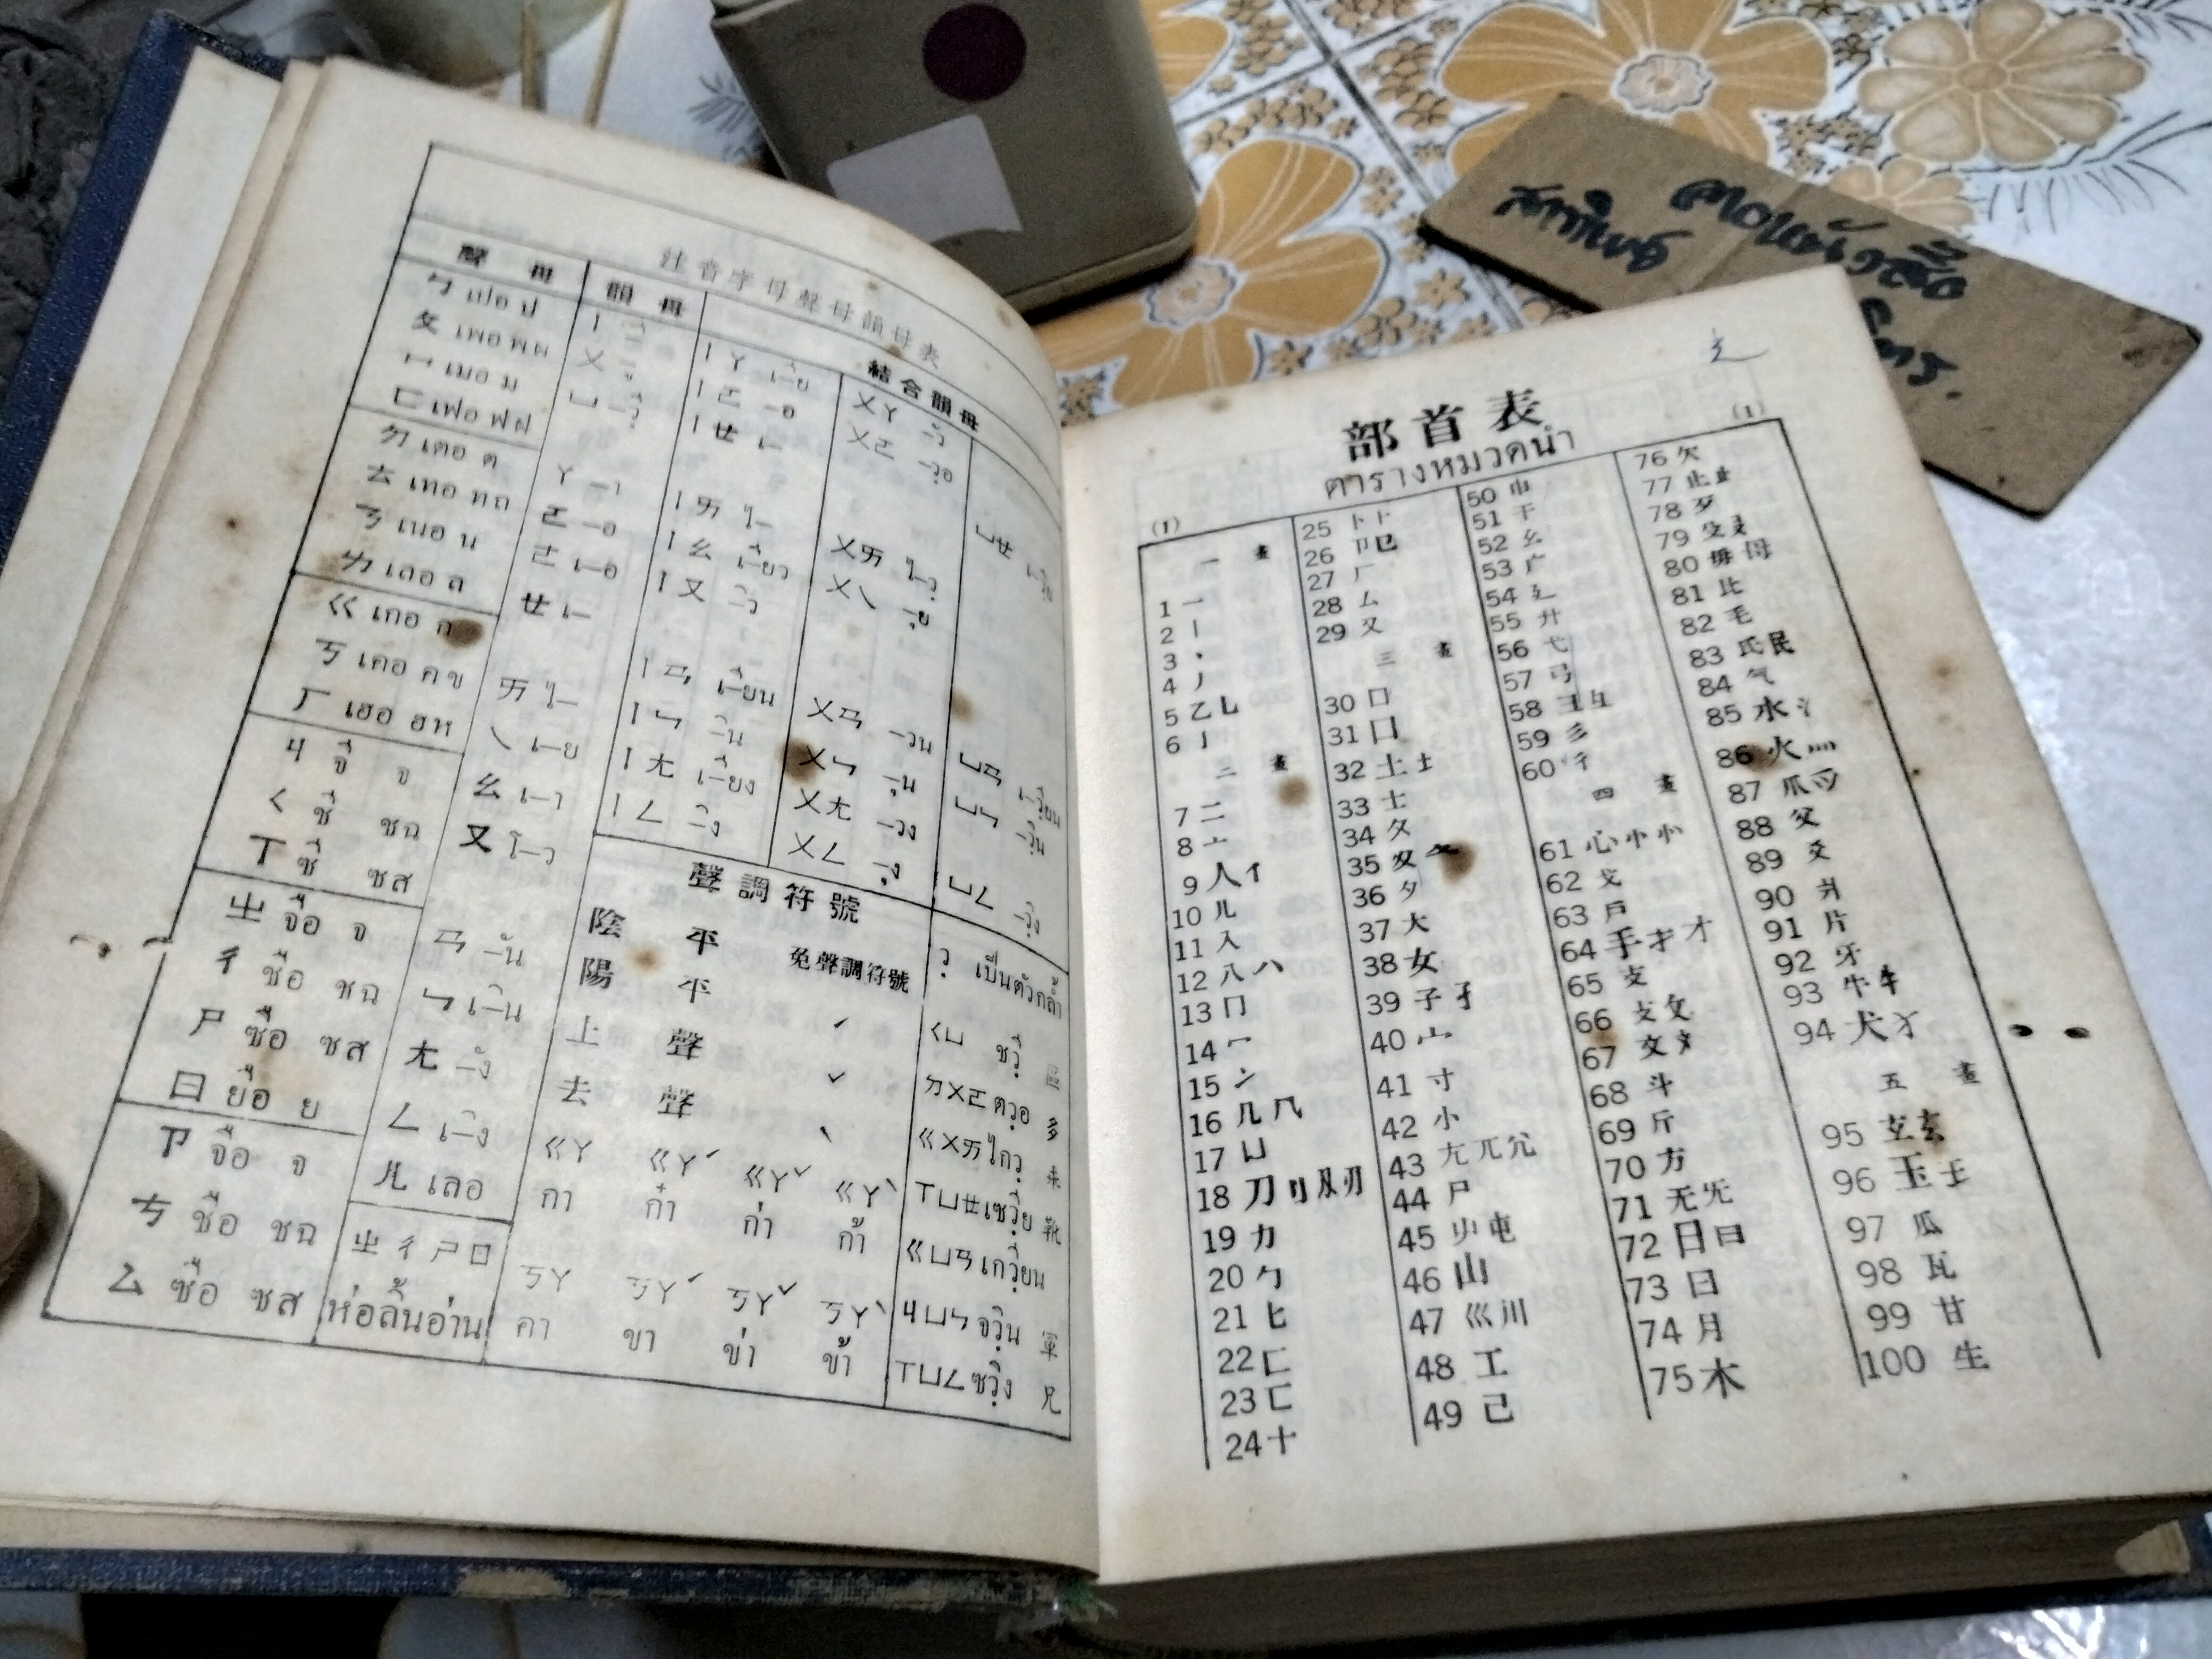 注音字母聲母韻母表
聲 母
ㄅ เปอ ป
ㄆ เพอ พผ
ㄇ เมอ ม
ㄈ เฟอ ฟฝ
ㄉ เตอ ต
ㄊ เทอ ทถ
ㄋ เนอ น
ㄌ เลอ ล
ㄍ เกอ ก
ㄎ เคอ คข
ㄏ เฮอ ฮห
ㄐ จี่ จ
ㄑ ชี่ ชฉ
ㄒ ซี่ ซส
ㄓ จื่อ จ
ㄔ ชื่อ ชฉ
ㄕ ซื่อ ซส
ㄖ ยื่อ ย
ㄗ จื่อ จ
ㄘ ชื่อ ชฉ
ㄙ ซื่อ ซส
韻 母
ㄧ
ㄨ
ㄩ
ㄚ –า
ㄛ –อ
ㄜ เ–อ
ㄝ เ–
ㄞ ไ–
ㄟ เ–ย
ㄠ เ–า
ㄡ โ–ว
ㄢ –ัน
ㄣ เ–ิน
ㄤ –ัง
ㄥ เ–ิง
ㄦ เลอ
ㄓㄔㄕㄖ
ห่อลิ้นอ่าน
結合韻母
ㄧㄚ
ㄧㄛ
ㄧㄝ
ㄧㄞ
ㄧㄠ
ㄧㄡ
ㄧㄢ
ㄧㄣ
ㄧㄤ
ㄧㄥ
ㄨㄚ
ㄨㄛ
ㄨㄞ
ㄨㄟ
ㄨㄢ
ㄨㄣ
ㄨㄤ
ㄨㄥ
ㄩㄝ
ㄩㄢ
ㄩㄣ
ㄩㄥ
聲調符號
陰 平 免聲調符號
陽 平 ˊ
上 聲 ˇ
去 聲 ˋ
ㄍㄚ ㄍㄚˊ ㄍㄚˇ ㄍㄚˋ
กา ก๋า ก่า ก้า
ㄎㄚ ㄎㄚˊ ㄎㄚˇ ㄎㄚˋ
คา ขา ข่า ข้า
วฺ เป็นตัวกล้ำ
ㄑㄩ ชวฺี 區
ㄉㄨㄛ ตวฺอ 多
ㄍㄨㄞ ไกวฺ 乖
ㄒㄩㄝ เซวฺีย 靴
ㄍㄩㄢ เกวฺียน
ㄐㄩㄣ จวฺิน 軍
ㄒㄩㄥ ซวฺิง 兄
部首表
ตารางหมวดนำ
(1) (1)
一 畫
1 一
2 丨
3 丶
4 丿
5 乙乚
6 亅
二 畫
7 二
8 亠
9 人亻
10 儿
11 入
12 八ハ
13 冂
14 冖
15 冫
16 几⺇
17 凵
18 刀刂刄刃
19 力
20 勹
21 匕
22 匚
23 匸
24 十
25 卜⺊
26 卩㔾
27 厂
28 厶
29 又
三 畫
30 口
31 囗
32 土
33 士
34 夂
35 夊
36 夕
37 大
38 女
39 子孑
40 宀
41 寸
42 小
43 尢兀尣
44 尸
45 屮屯
46 山
47 巛川
48 工
49 己
50 巾
51 干
52 幺
53 广
54 廴
55 廾
56 弋
57 弓
58 彐彑
59 彡
60 彳
四 畫
61 心忄㣺
62 戈
63 戶
64 手扌才
65 支
66 攴攵
67 文
68 斗
69 斤
70 方
71 无旡
72 日
73 曰
74 月
75 木
76 欠
77 止
78 歹
79 殳
80 毋母
81 比
82 毛
83 氏民
84 气
85 水氵
86 火灬
87 爪爫
88 父
89 爻
90 爿
91 片
92 牙
93 牛牜
94 犬犭
五 畫
95 玄
96 玉王
97 瓜
98 瓦
99 甘
100 生